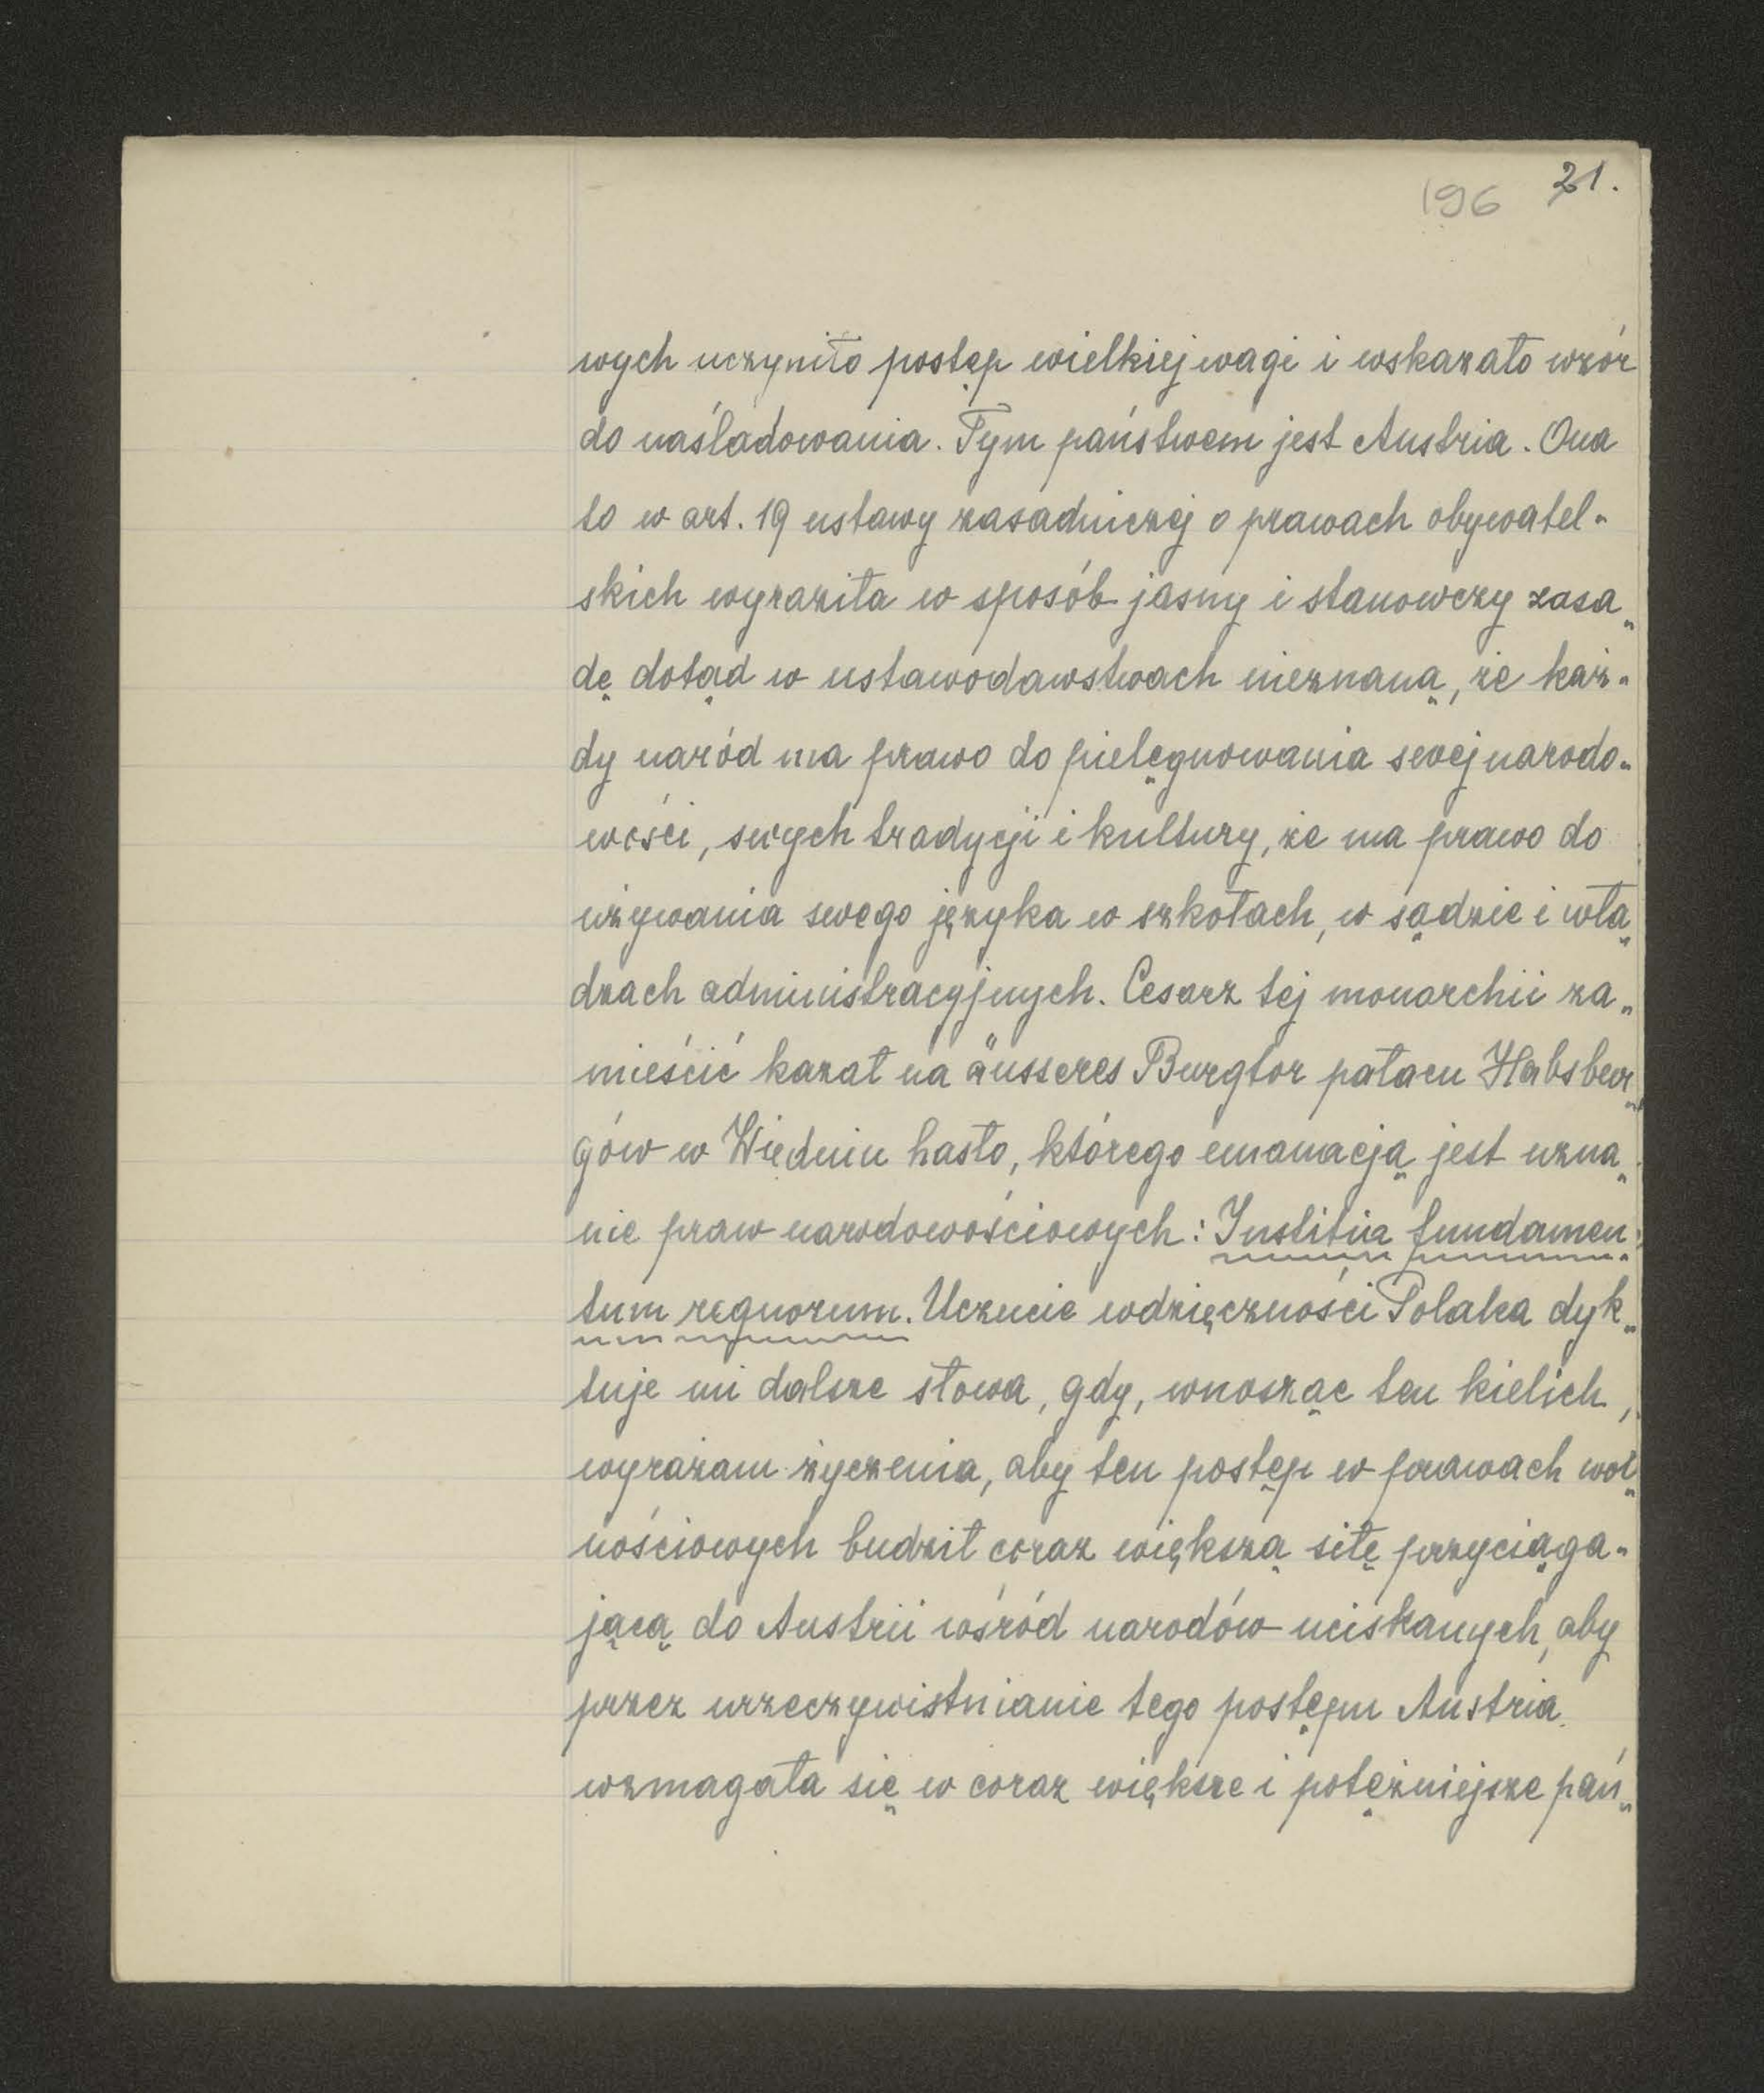 196 21.
wych uczyniło postęp wielkiej wagi i wskazało wzór
do naśladowania. Tym państwem jest Austria. Ona
to w art. 19 ustawy zasadniczej o prawach obywatel-
skich wyraziła w sposób jasny i stanowczy zasa-
dę dotąd w ustawodawstwach nieznaną, że każ-
dy naród ma prawo do pielęgnowania swej narodo-
wości, swych tradycji i kultury, że ma prawo do
używania swego języka w szkołach, w sądzie i wła-
dzach administracyjnych. Cesarz tej monarchii za-
mieścić kazał na äusseres Burgtor pałacu Habsbur-
gów w Wiedniu hasło, którego emanacją jest uzna-
nie praw narodowościowych: Institia fundamen-
tum regnorum. Uczucie wdzięczności Polaka dyk-
tuje mi dalsze słowa, gdy, wnosząc ten kielich,
wyrażam życzenia, aby ten postęp w prawach wol-
nościowych budził coraz większą siłę przyciąga-
jącą do Austrii wśród narodów uciskanych, aby
przez urzeczywistnianie tego postępu Austria
wzmagała się w coraz większe i potężniejsze pań-